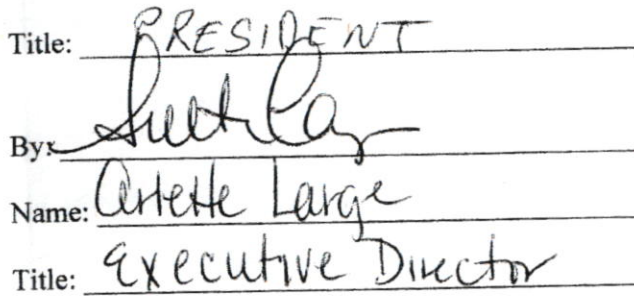 Title: PRESIDENT
By:
Name: Arlette Large
Title: Executive Director